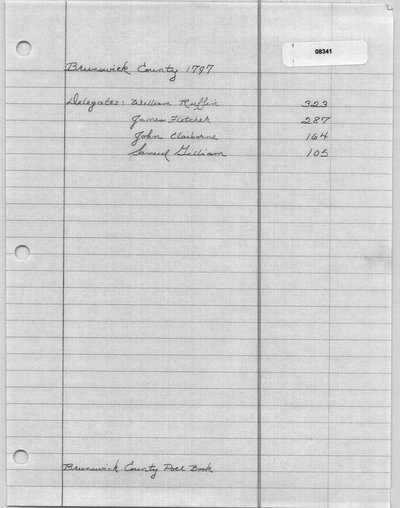 08341
Brunswick County 1797
Delegates: William Ruffin 323
James Fletcher 287
John Claiborne 164
Samuel Gilliam 105
Brunswick County Poll Book